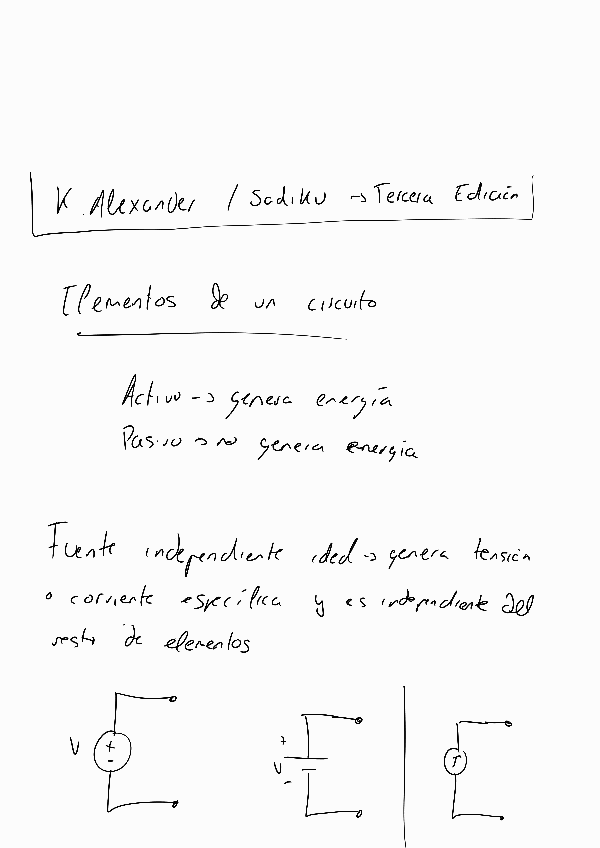 K. Alexander / Sadiku → Tercera Edición
Elementos de un circuito
Activo → genera energía
Pasivo → no genera energia
Fuente independiente ideal → genera tensión
o corriente específica y es independiente del
resto de elementos
V + - + V - I